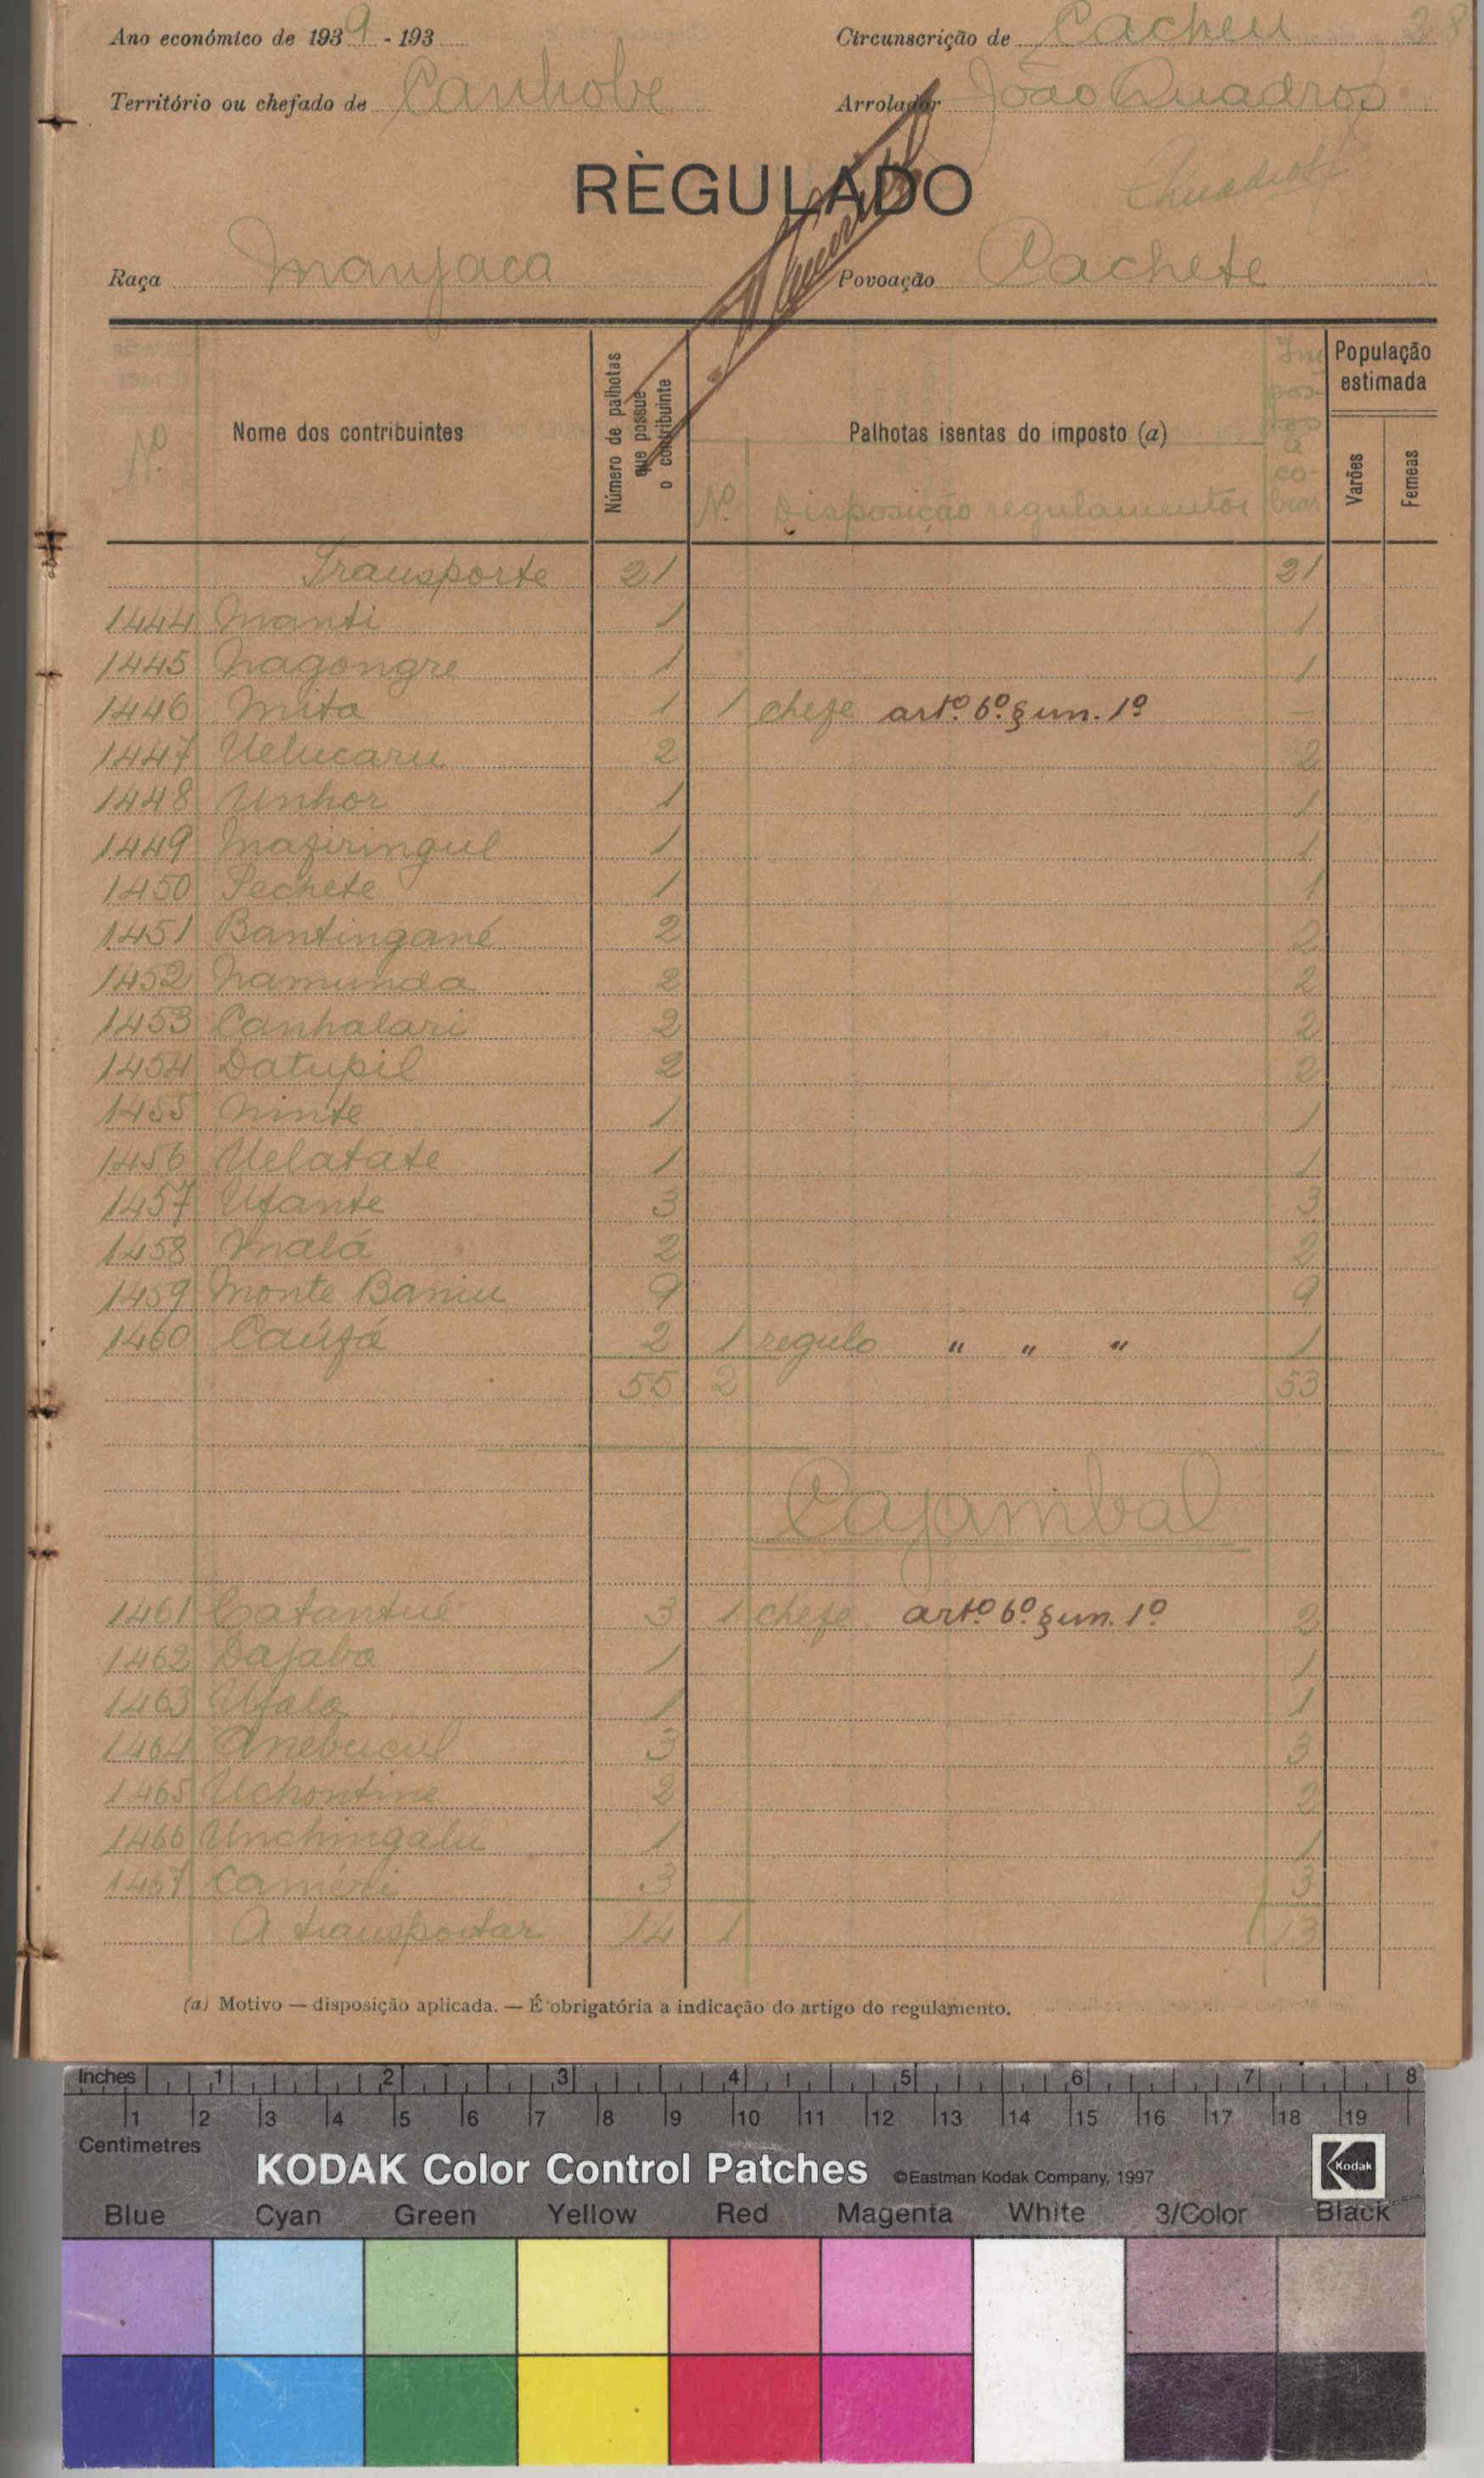 Ano económico de 1939 - 193
Circunscrição de Cacheu 28
Território ou chefado de Canhobe
Arrolador João Quadros
RÈGULADO
Raça Manjaca
Povoação Cachete
Nº
Nome dos contribuintes
Número de palhotas que possue o contribuinte
Palhotas isentas do imposto (a)
Nº Disposição regulamentor
Impostos a cobrar
População estimada
Varões
Femeas
Transporte 21 21
1444 Manti 1 1
1445 Nagongre 1 1
1446 Mita 1 1 chefe artº 6º § um. 1º —
1447 Uelucaru 2 2
1448 Unhor 1 1
1449 Mafiringul 1 1
1450 Pechete 1 1
1451 Bantingané 2 2
1452 Namunda 2 2
1453 Canhalari 2 2
1454 Datupil 2 2
1455 Ninte 1 1
1456 Uelatate 1 1
1457 Ufante 3 3
1458 Malá 2 2
1459 Monte Baniu 9 9
1460 Caúfá 2 1 regulo " " " 1
55 2 53
Cajambal
1461 Catantué 3 1 chefe artº 6º § um. 1º 2
1462 Dajabo 1 1
1463 Ufala 1 1
1464 Anebucul 3 3
1465 Uchontine 2 2
1466 Unchingalu 1 1
1467 Caméri 3 3
A transportar 14 1 13
(a) Motivo — disposição aplicada. — É obrigatória a indicação do artigo do regulamento.
Inches 1 2 3 4 5 6 7 8
1 2 3 4 5 6 7 8 9 10 11 12 13 14 15 16 17 18 19
Centimetres
KODAK Color Control Patches ©Eastman Kodak Company, 1997 Kodak
Blue Cyan Green Yellow Red Magenta White 3/Color Black